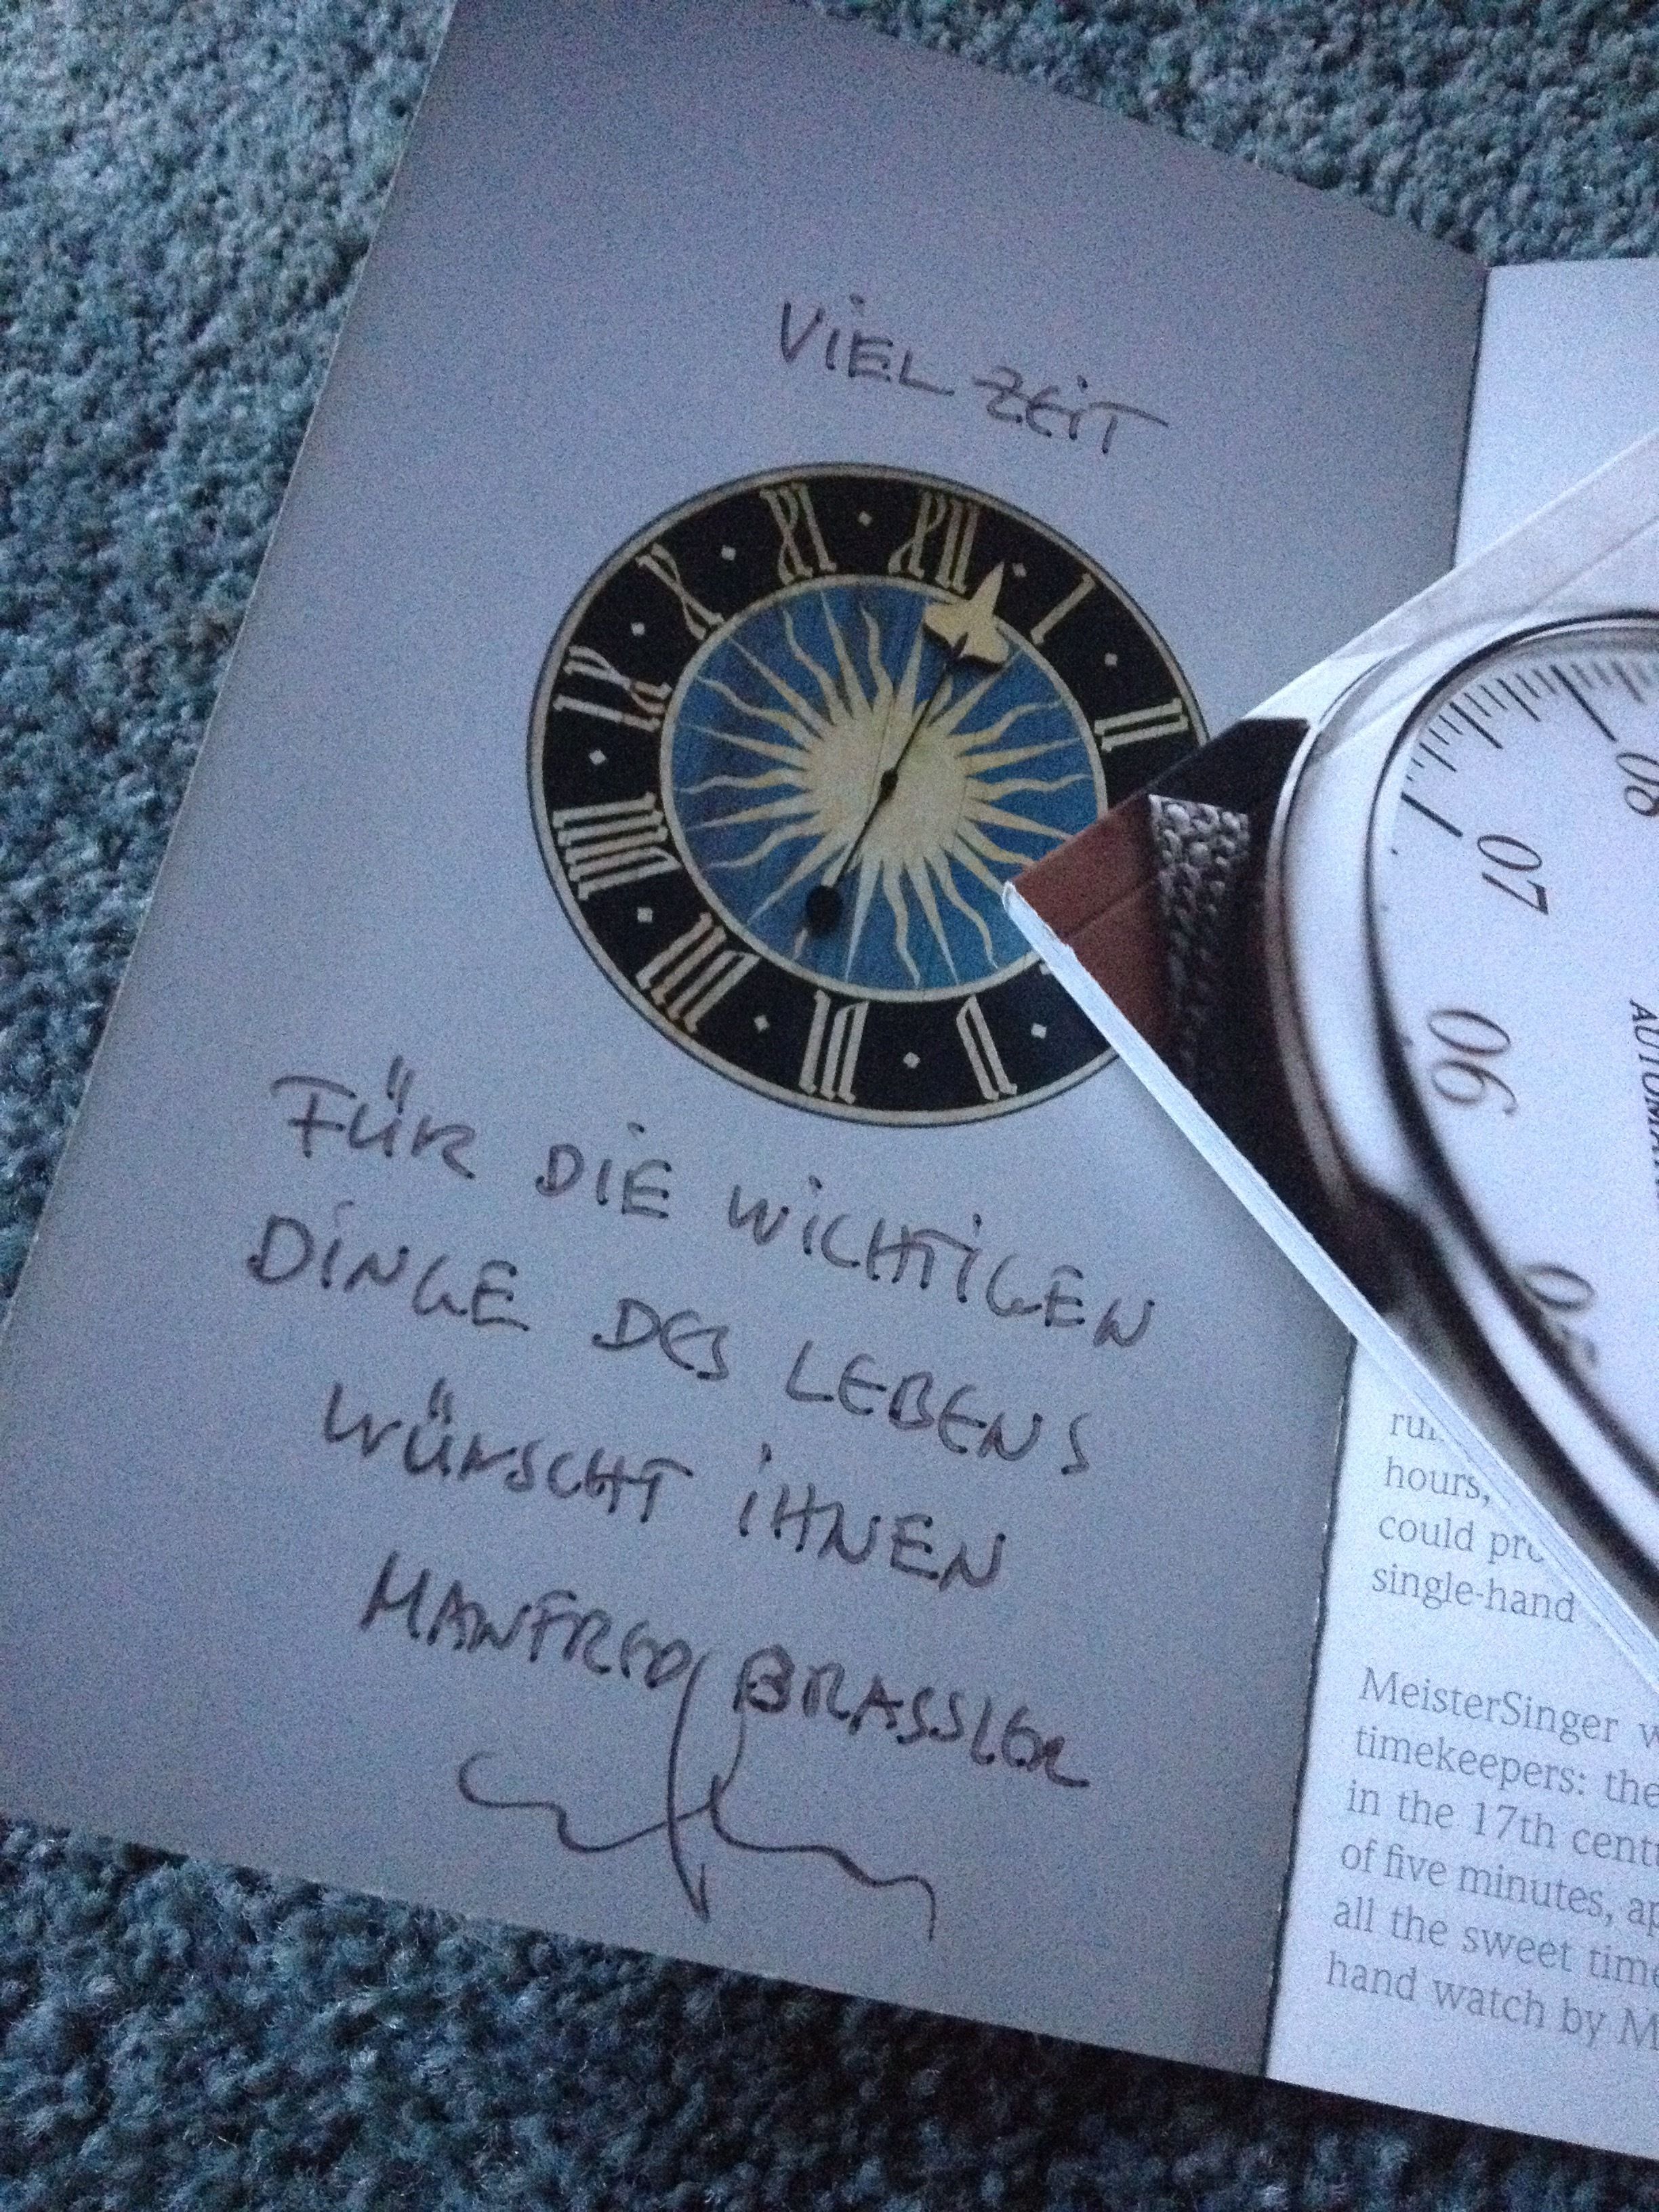 VIEL ZEIT
XII
I
II
V
VI
VII
VIII
IX
X
XI
FÜR DIE WICHTIGEN
DINGE DES LEBENS
WÜNSCHT IHNEN
MANFRED BRASSLER
08
07
06
05
hours,
could
single-hand
MeisterSinger
timekeepers: the
in the 17th
of five minutes,
all the sweet
hand watch by